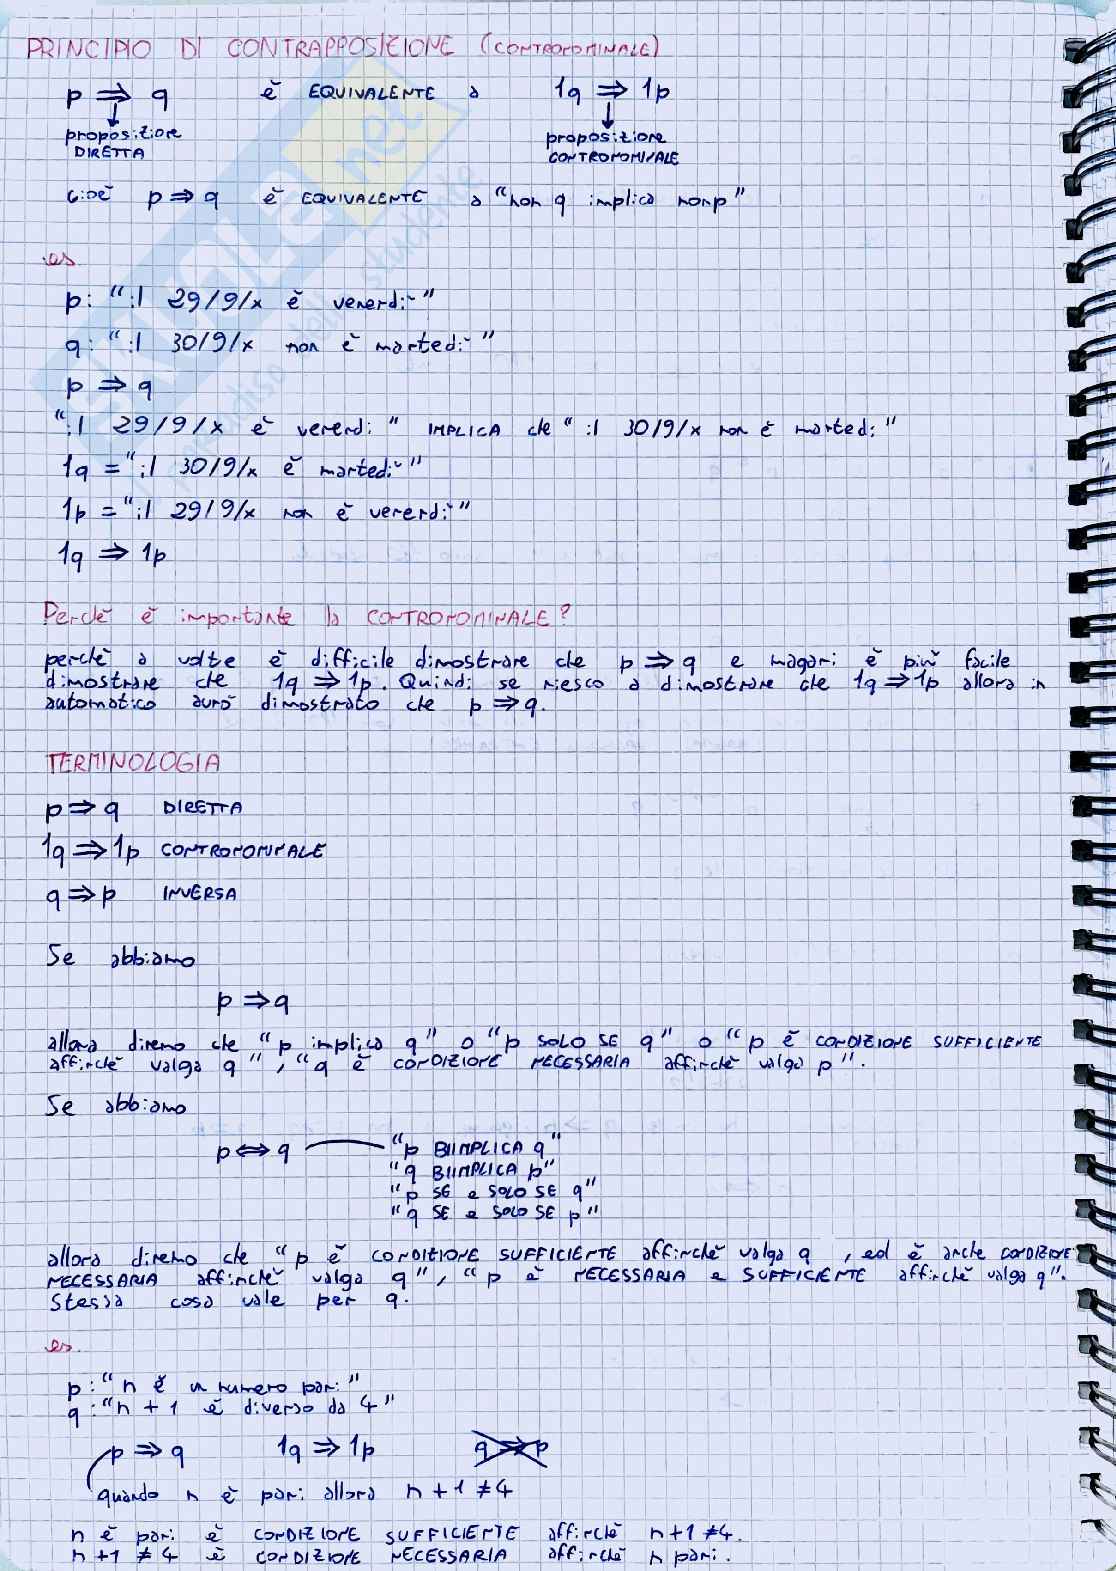 PRINCIPIO DI CONTRAPPOSIZIONE (CONTRONOMINALE)
p ⇒ q è EQUIVALENTE a ¬q ⇒ ¬p
proposizione proposizione
DIRETTA CONTRONOMINALE
cioè p ⇒ q è EQUIVALENTE a "non q implica non p"
es
p: "il 29/9/x è venerdì"
q: "il 30/9/x non è martedì"
p ⇒ q
"il 29/9/x è venerdì" IMPLICA che "il 30/9/x non è martedì"
¬q = "il 30/9/x è martedì"
¬p = "il 29/9/x non è venerdì"
¬q ⇒ ¬p
Perchè è importante la CONTRONOMINALE?
perchè a volte è difficile dimostrare che p ⇒ q e magari è più facile
dimostrare che ¬q ⇒ ¬p. Quindi se riesco a dimostrare che ¬q ⇒ ¬p allora in
automatico avrò dimostrato che p ⇒ q.
TERMINOLOGIA
p ⇒ q DIRETTA
¬q ⇒ ¬p CONTRONOMINALE
q ⇒ p INVERSA
Se abbiamo
p ⇒ q
allora diremo che "p implica q" o "p SOLO SE q" o "p è CONDIZIONE SUFFICIENTE
affinchè valga q", "q è CONDIZIONE NECESSARIA affinchè valga p".
Se abbiamo
p ⇔ q "p BIIMPLICA q"
"q BIIMPLICA p"
"p SE e SOLO SE q"
"q SE e SOLO SE p"
allora diremo che "p è CONDIZIONE SUFFICIENTE affinchè valga q, ed è anche CONDIZIONE
NECESSARIA affinchè valga q", "p è NECESSARIA e SUFFICIENTE affinchè valga q".
Stessa cosa vale per q.
es.
p: "n è un numero pari"
q: "n + 1 è diverso da 4"
p ⇒ q ¬q ⇒ ¬p q ⇒ p
quando n è pari allora n + 1 ≠ 4
n è pari è CONDIZIONE SUFFICIENTE affinchè n+1 ≠ 4.
n+1 ≠ 4 è CONDIZIONE NECESSARIA affinchè n pari.